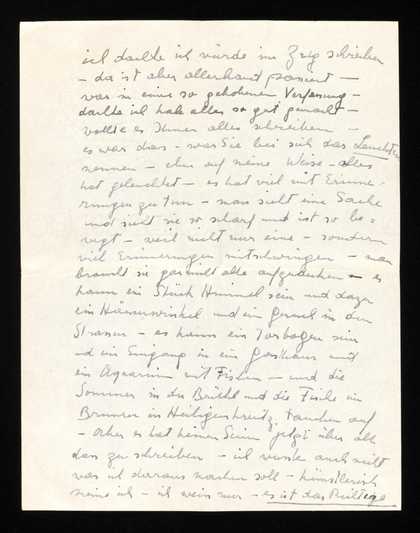 ich dachte ich würde im Zug schreiben
– da ist aber allerhand passiert –
war in einer so gehobenen Verfassung –
dachte ich habe alles so gut gemacht –
wollte es Ihnen alles schreiben –
es war das – was Sie bei sich das Leuchten
nennen – eben auf meine Weise – alles
hat geleuchtet – es hat viel mit Erinne-
rungen zu tun – man sieht eine Sache
und sieht sie so scharf und ist so be-
wegt – weil nicht nur eine – sondern
viel Erinnerungen mitschwingen – man
braucht sie gar nicht alle aufzudecken – es
kann ein Stück Himmel sein und dazu
ein Häuserwinkel und ein Geruch in den
Strassen – es kann ein Torbogen sein
und ein Eingang in ein Gasthaus mit
ein Aquarium mit Fischen – und die
Sommer in der Brühl und die Fische im
Brunnen in Heiligenkreuz tauchen auf
– aber es hat keinen Sinn jetzt über all
das zu schreiben – ich wusste auch nicht
was ich daraus machen soll – künstlerisch
meine ich – ich weiss nur – es ist das Richtige